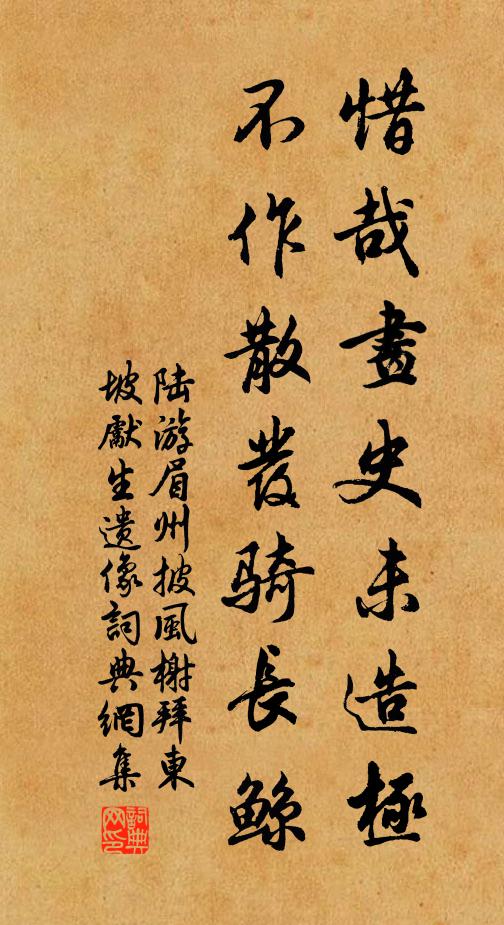 惜哉畫史未造極
不作散發騎長鯨
陆游眉州披風榭拜東
坡獻生遺像詞典網集
詞典网印